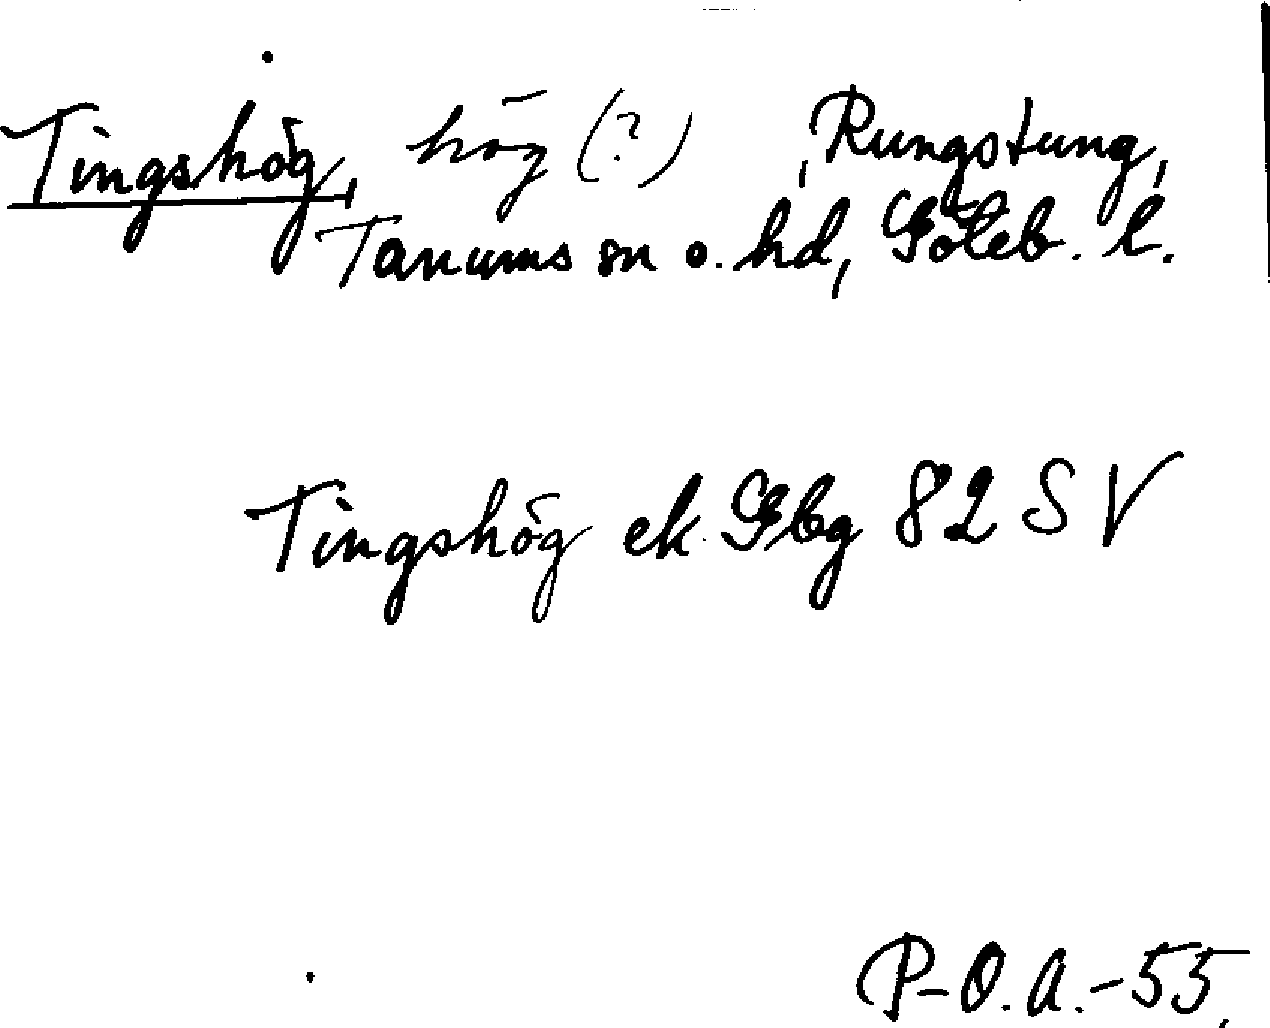 Tingshög, hög (?) , Rungstung,
Tanums sn o. hd, Göteb. l.
Tingshög ek. Gbg 82 SV
P-O.A.-55.